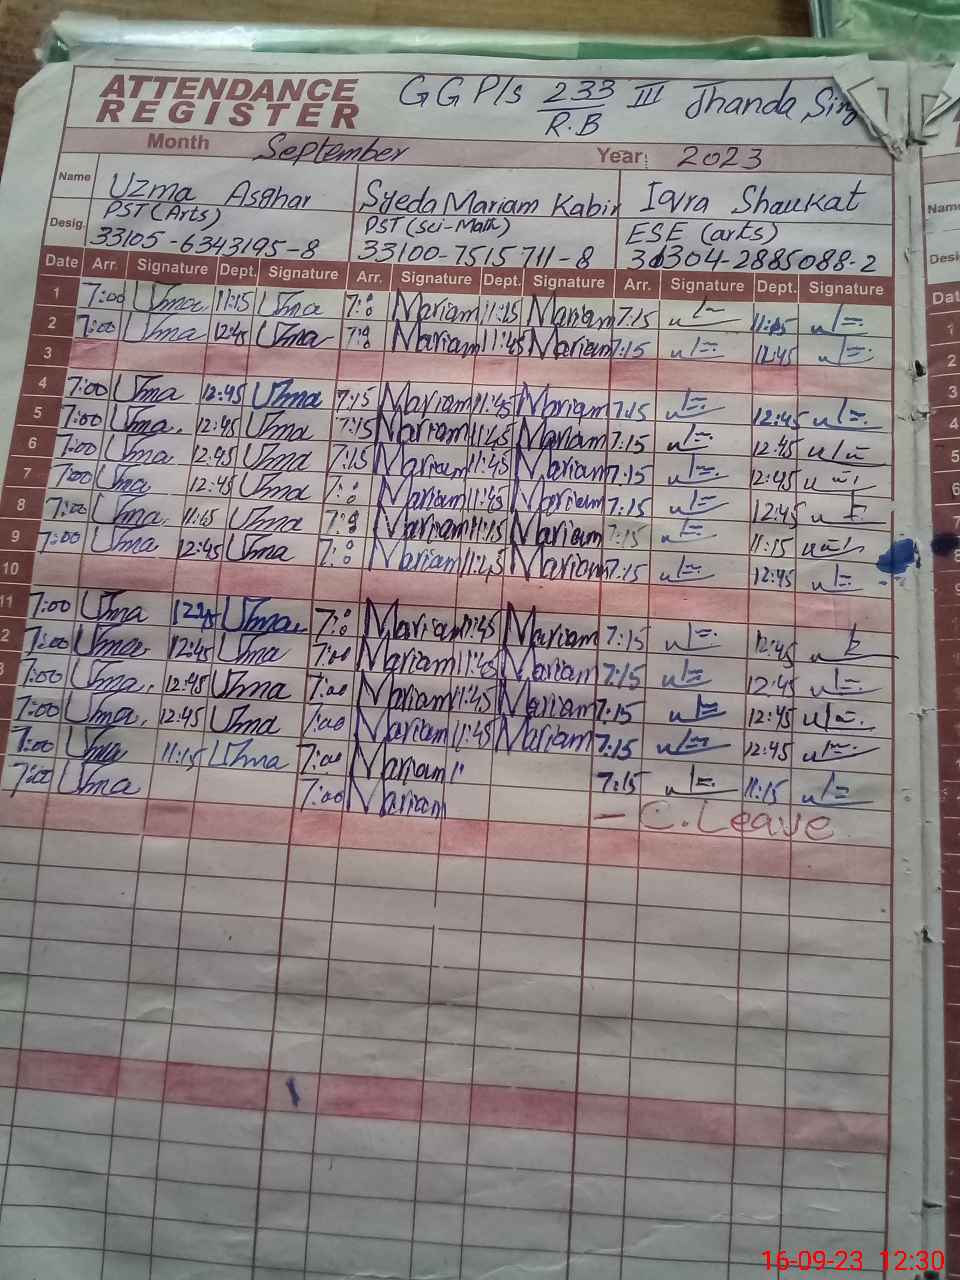 ATTENDANCE REGISTER GGP/s 233/R.B III Jhanda Sing
Month September Year: 2023
Name Uzma Asghar Syeda Mariam Kabir Iqra Shaukat
Desig. PST (Arts) PST (Sci-Math) ESE (arts)
33105-6343195-8 33100-7515711-8 3304-2885088-2
Date Arr. Signature Dept. Signature Arr. Signature Dept. Signature Arr. Signature Dept. Signature
1 7:00 Uzma 11:15 Uzma 7:00 Mariam 11:15 Mariam 7:15 11:15
2 7:00 Uzma 12:45 Uzma 7:00 Mariam 11:45 Mariam 7:15 12:45
3
4 7:00 Uzma 12:45 Uzma 7:15 Mariam 11:45 Mariam 7:15 12:45
5 7:00 Uzma. 12:45 Uzma 7:15 Mariam 11:45 Mariam 7:15 12:45
6 7:00 Uzma 12:45 Uzma 7:15 Mariam 11:45 Mariam 7:15 12:45
7 7:00 Uzma 12:45 Uzma 7:00 Mariam 11:45 Mariam 7:15 12:45
8 7:00 Uzma. 11:15 Uzma 7:00 Mariam 11:15 Mariam 7:15 11:15
9 7:00 Uzma 12:45 Uzma 7:00 Mariam 11:45 Mariam 7:15 12:45
10
11 7:00 Uzma 12:45 Uzma 7:00 Mariam 11:45 Mariam 7:15 12:45
2 7:00 Uzma. 12:45 Uzma 7:00 Mariam 11:45 Mariam 7:15 12:45
3 7:00 Uzma. 12:45 Uzma 7:00 Mariam 11:45 Mariam 7:15 12:45
7:00 Uzma. 12:45 Uzma 7:00 Mariam 11:45 Mariam 7:15 12:45
7:00 Uzma 11:15 Uzma 7:00 Mariam 7:15 11:15
7:00 Uzma 7:00 Mariam – C. Leave
Name
Desig
Dat
1
2
3
4
5
6
7
8
9
16-09-23 12:30